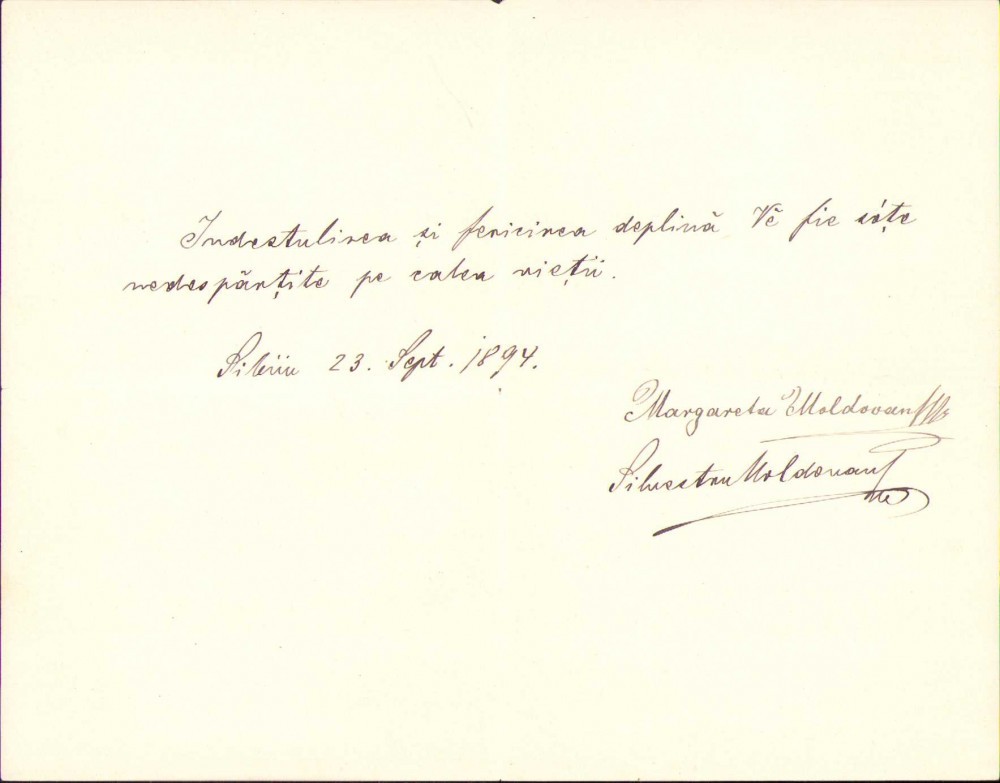 Indestulirea și fericirea deplină Vĕ fie sóțe
nedespărțite pe calea vieții.
Sibiiu 23. Sept. 1894.
Margareta Moldovan
Silvestru Moldovan